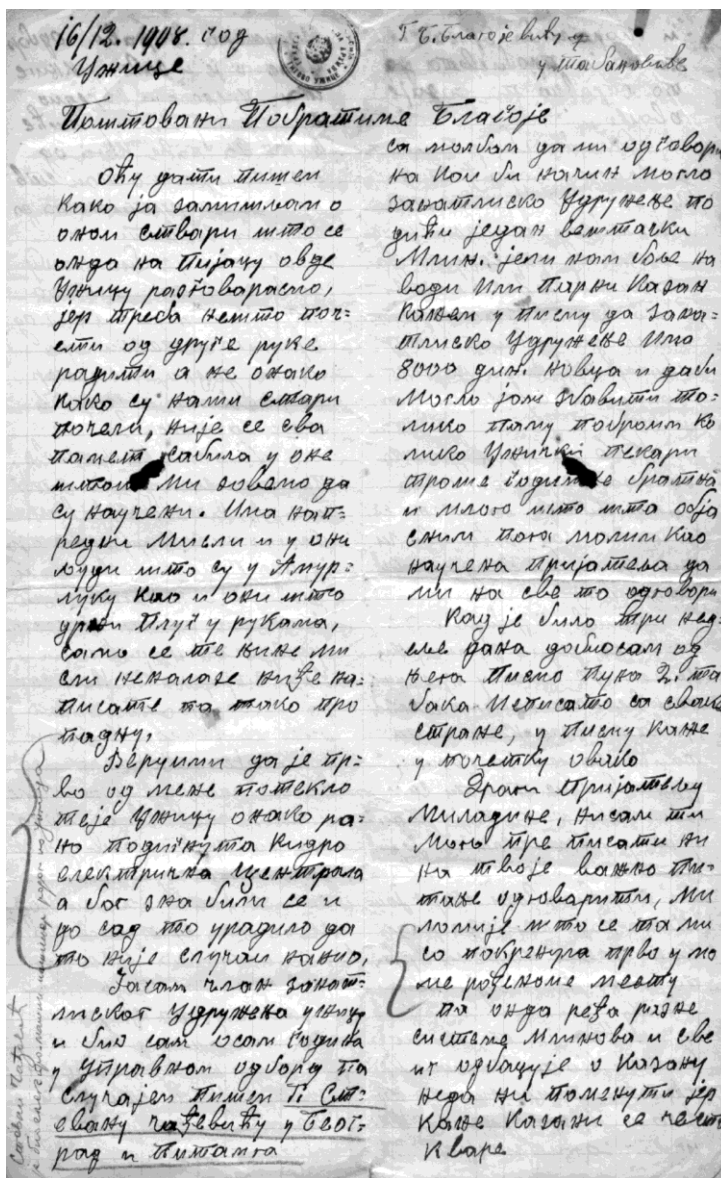 16/12. 1908. год
Ужице
Г Б. Благојевићу
у Табановиће
Поштовани Побратиме Благоје
Оћу дати пишем
како ја замишљам о
оном ствари што се
онда на Пијацу овде
Ужицу разговорасмо,
јер треба нешто поч-
ети од друге руке
радити а не онако
како су наши стари
почели, није се сва
памет сабила у оне
што Ми зовемо да
су научени. Има нап-
редни Мисли и у они
људи што су у Амур-
луку као и они што
држи Плуг у рукама,
само се те њине ми
сли неналазе ниђе на-
писате па тако про
падну.
Верујми да је пр-
во од мене потекло
теје Ужицу онако ра-
но подигнута Хидро
електрична Централа
а бог зна били се и
до сад то урадило да
то није случај нанио,
Јасам члан занат-
лиског Удружења ужицу
и био сам осам година
у Управном одбору па
случајем пишем Г. Ст-
евану Чађевићу у Беог-
рад и Питамга
са молбом да ми одговори
на кои би начин могло
занатлиско Удружење по
дићи један вештачки
Млин. јели нам боље на
води Или Парни Казан
Кажем у Писму да зана-
тлиско Удружење Има
8000 дин. новца и даби
Могло још набавити то-
лико пошто
лико Ужички пекари
троше годишње брашна
и много што шта обја
сним пога молим Као
научена пријатеља да
ми на све то одговори
Кад је било три нед-
еље дана добиосам од
њега Писмо Пуно 2. та
бака Исписато са сваке
стране, у Писму Каже
у почетку овако
Драги Пријатељу
Миладине, нисам ти
Мого пре писати ни
на твоје важно Пи-
тање одговорити, Ми
ломије што се та ми
со покренула прво у мо
ме рођеноме месту
па онда ређа разне
системе Млинова и све
иг одбацује о Казану
неда ни поменути јер
каже Казани се често
кваре